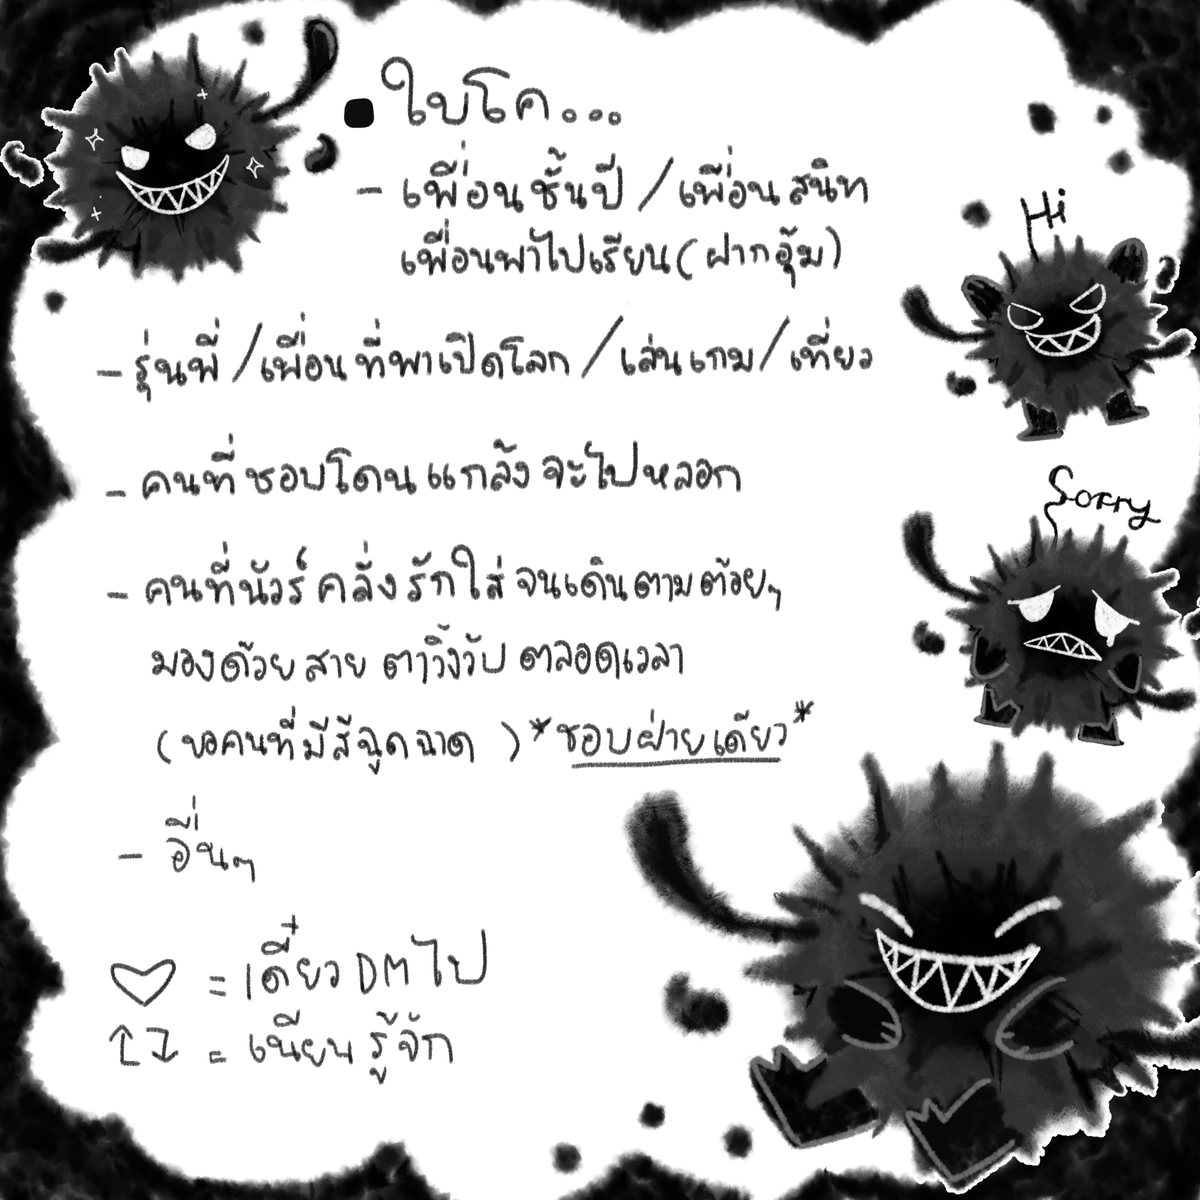 ▪ใบโค...
- เพื่อนชั้นปี / เพื่อนสนิท
เพื่อนพาไปเรียน (ฝากอุ้ม)
Hi
- รุ่นพี่ / เพื่อนที่พาเปิดโลก / เล่นเกม / เที่ยว
- คนที่ชอบโดนแกล้งจะไปหลอก
Sorry
- คนที่นัวร์ คลั่งรักใส่ จนเดินตามต้อยๆ
มองด้วยสายตาวิ้งวับ ตลอดเวลา
(ขอคนที่มีสีฉูดฉาด) *ชอบฝ่ายเดียว*
- อื่นๆ
♡ = เดี๋ยว DM ไป
↑↓ = เนียนรู้จัก